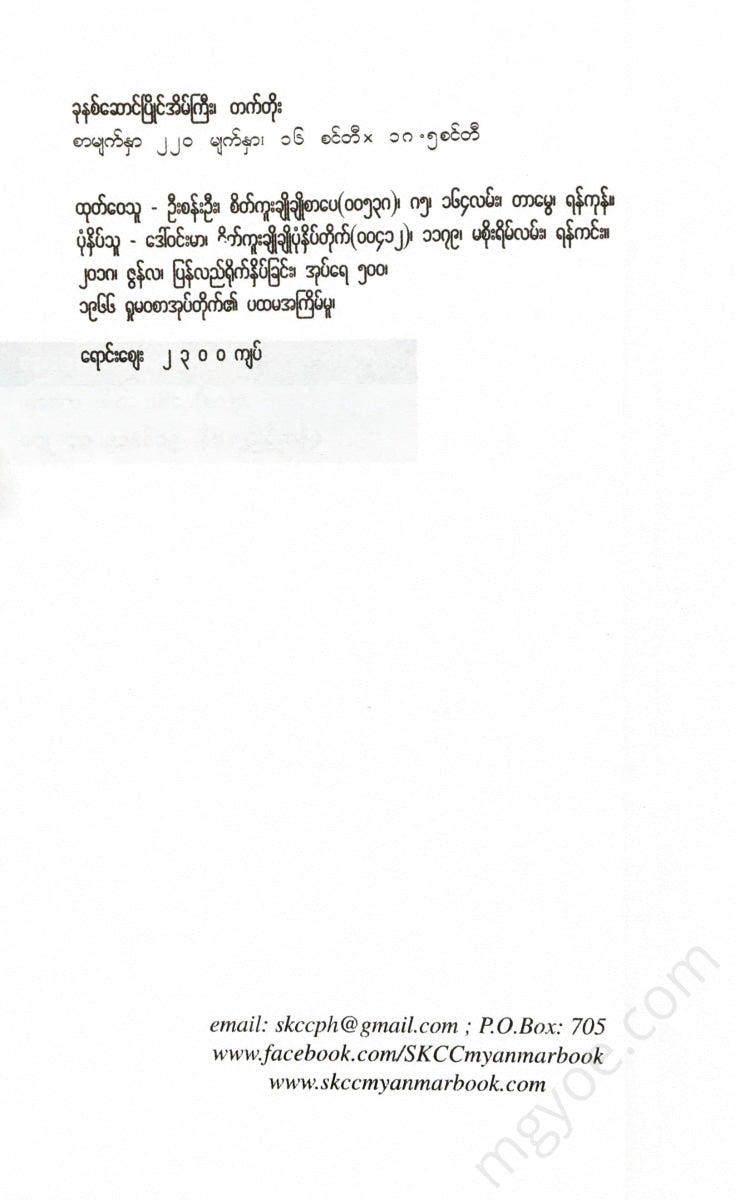 ခုနစ်ဆောင်ပြိုင်အိမ်ကြီး၊ တက်တိုး
စာမျက်နှာ ၂၂၀ မျက်နှာ၊ ၁၆ စင်တီ× ၁၈.၅စင်တီ
ထုတ်ဝေသူ - ဦးစန်းဦး၊ စိတ်ကူးချိုချိုစာပေ(၀၀၅၃၈)၊ ၈၅၊ ၁၆၄လမ်း၊ တာမွေ၊ ရန်ကုန်။
ပုံနှိပ်သူ - ဒေါ်ဝင်းမာ၊ စိတ်ကူးချိုချိုပုံနှိပ်တိုက်(၀၀၄၁၂)၊ ၁၁၇၉၊ မစိုးရိမ်လမ်း၊ ရန်ကင်း။
၂၀၁၈၊ ဇွန်လ၊ ပြန်လည်ရိုက်နှိပ်ခြင်း၊ အုပ်ရေ ၅၀၀၊
၁၉၆၆ ရှုမဝစာအုပ်တိုက်၏ ပထမအကြိမ်မူ၊
ရောင်းဈေး ၂ ၃ ၀ ၀ ကျပ်
email: skccph@gmail.com ; P.O.Box: 705
www.facebook.com/SKCCmyanmarbook
www.skccmyanmarbook.com
mgyoe.com